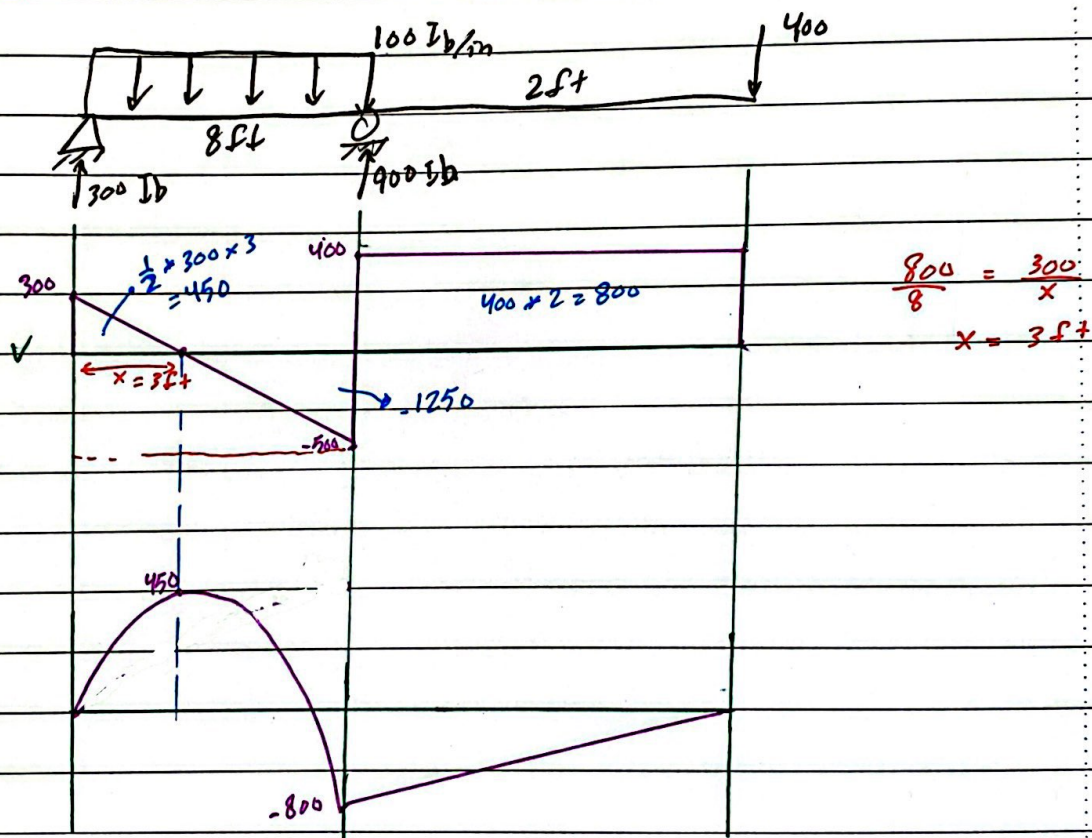 400
100 Ib/in
2ft
8ft
300 Ib
900 Ib
400
1/2 * 300 * 3
= 450
300
400 * 2 = 800
800/8 = 300/x
x = 3ft
V
x = 3ft
-1250
-500
450
-800